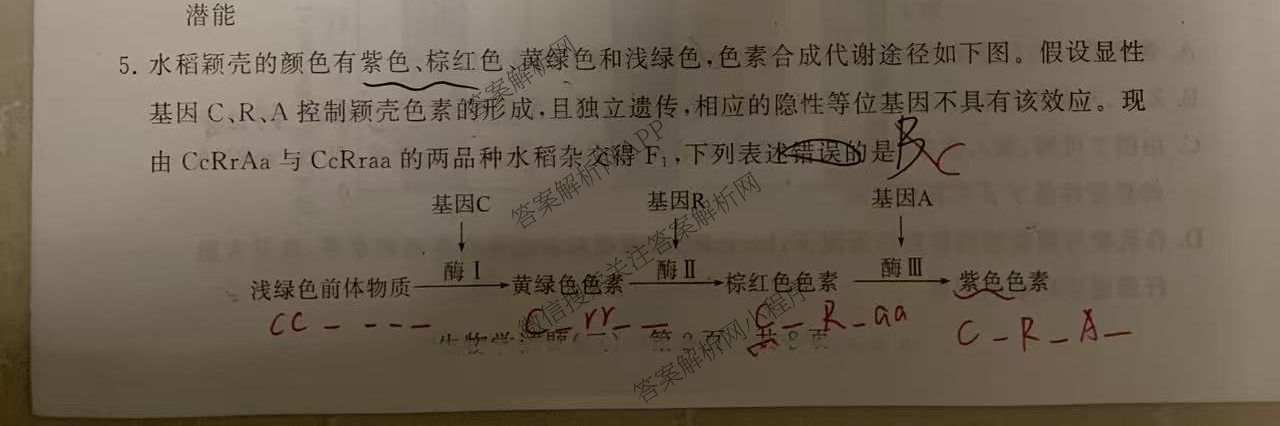 潜能
5. 水稻颖壳的颜色有紫色、棕红色、黄绿色和浅绿色,色素合成代谢途径如下图。假设显性
基因 C、R、A 控制颖壳色素的形成,且独立遗传,相应的隐性等位基因不具有该效应。现
由 CcRrAa 与 CcRraa 的两品种水稻杂交得 F₁,下列表述错误的是 B C
基因C 基因R 基因A
浅绿色前体物质 酶Ⅰ 黄绿色色素 酶Ⅱ 棕红色色素 酶Ⅲ 紫色色素
cc _ _ _ _ C _ rr _ _ C _ R _ aa C _ R _ A _
答案解析网
答案解析网APP
答案解析网
微信搜索关注答案解析网小程序
答案解析网